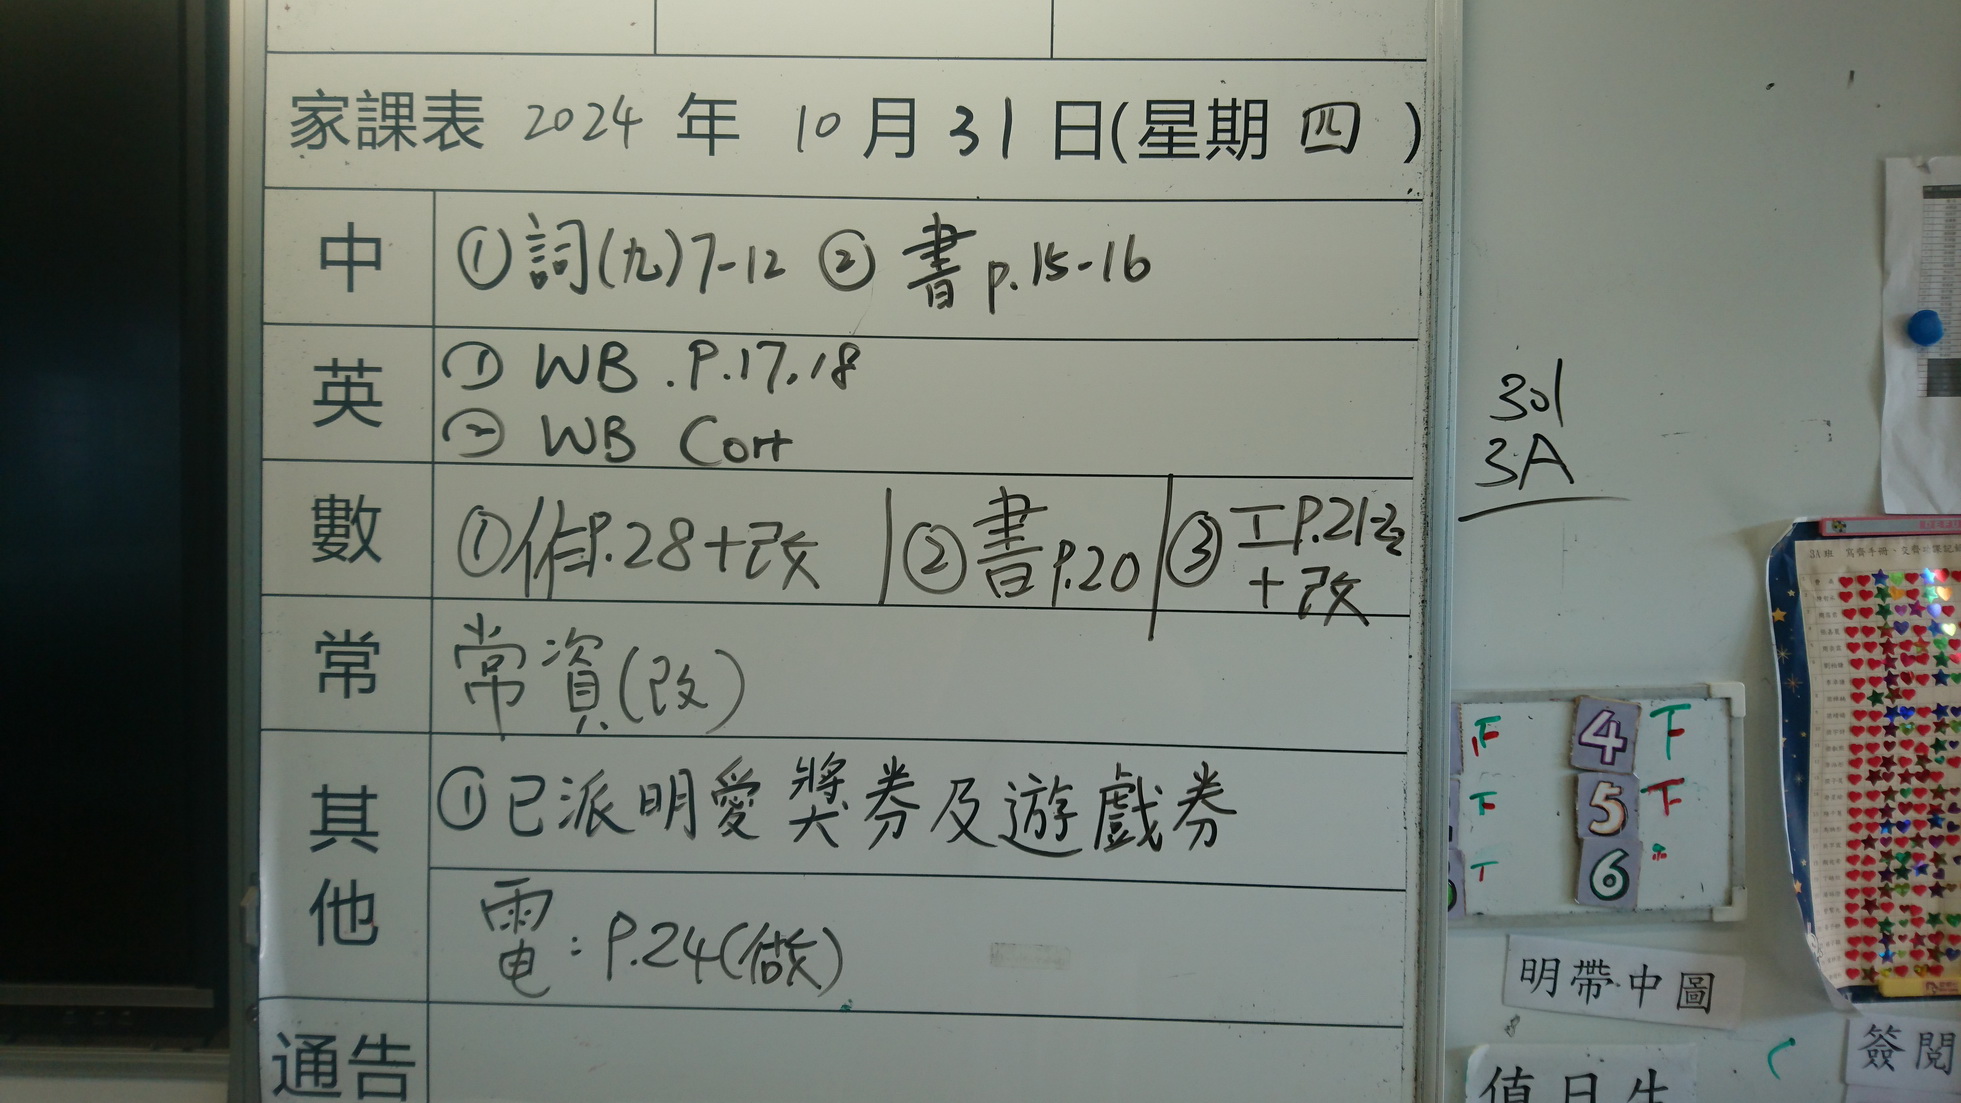 家課表 2024 年 10 月 31 日(星期 四 )
中 ①詞(九)7-12 ②書 p.15-16
英 ① WB .P.17,18
② WB Corr
數 ①作P.28+改 ②書P.20 ③工P.21-22
+改
常 常資(改)
其他 ①已派明愛獎券及遊戲券
電:P.24(做)
通告
301
3A
4
5
6
明帶中圖
簽閱
值日生